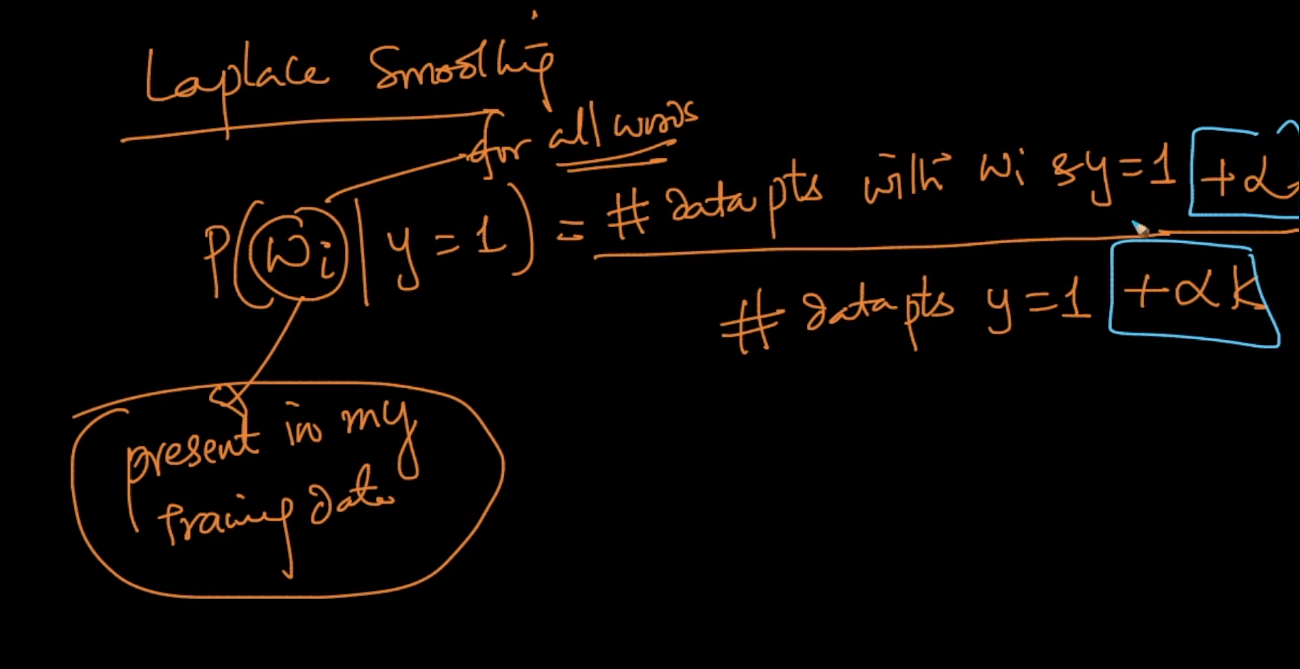 Laplace Smoothing
for all words
P(wi | y = 1) = # data pts with wi & y = 1 + α
# data pts y = 1 + αk
present in my
training data